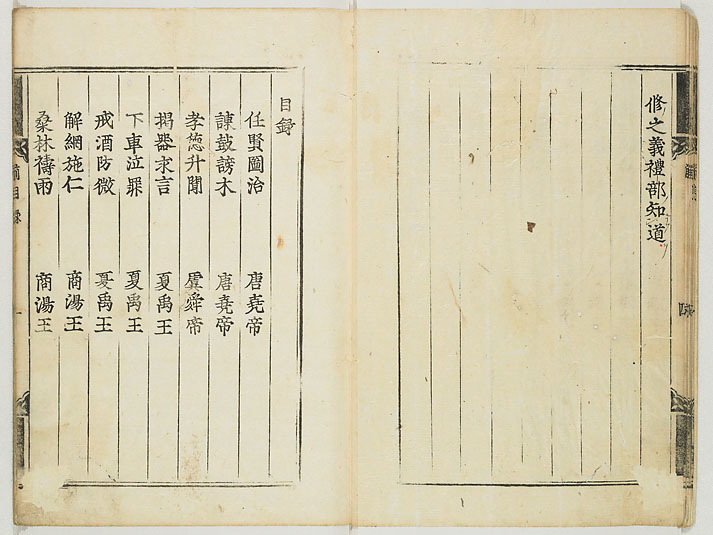 修之義禮部知道
目録
任賢圖治 唐堯帝
諫鼓謗木 唐堯帝
孝德升聞 虞舜帝
揭器求言 夏禹王
下車泣罪 夏禹王
戒酒防微 夏禹王
解網施仁 商湯王
桑林禱雨 商湯王